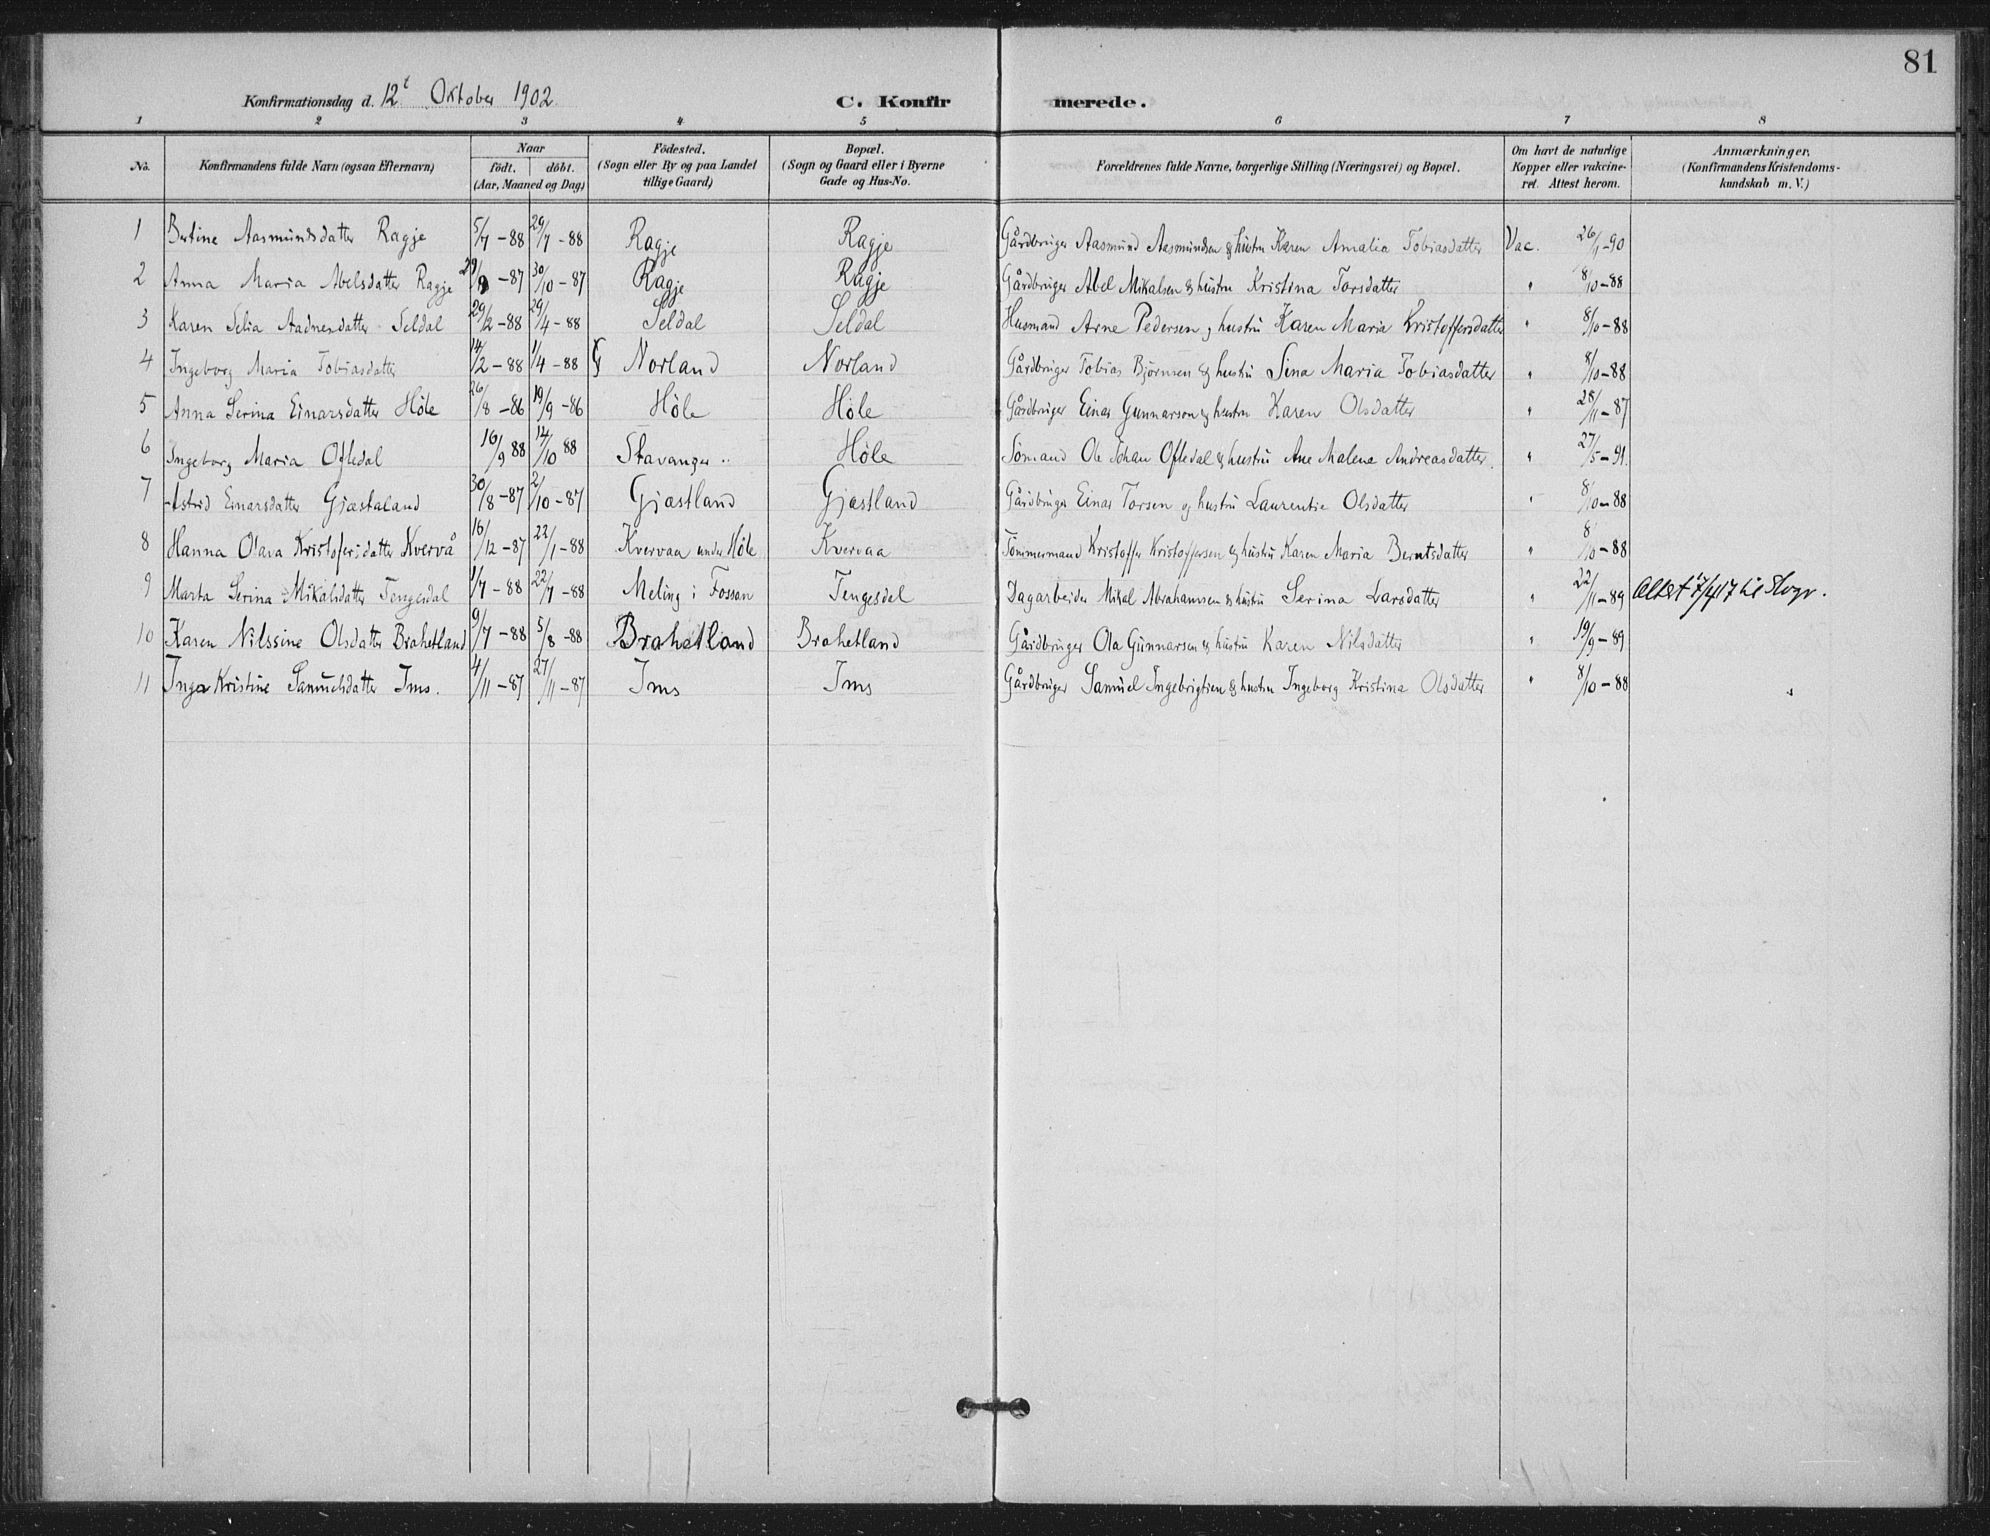 81
Konfirmationsdag d. 12t Oktober 1902. C. Konfirmerede.
1 2 3 4 5 6 7 8
No. Konfirmandens fulde Navn (ogsaa Efternavn) Naar födt. döbt. (Aar, Maaned og Dag) Födested. (Sogn eller By og paa Landet tillige Gaard) Bopæl. (Sogn og Gaard eller i Byerne Gade og Hus-No. Forældrenes fulde Navne, borgerlige Stilling (Næringsvei) og Bopæl. Om havt de naturlige Kopper eller vakcineret. Attest herom. Anmærkninger. (Konfirmandens Kristendomskundskab m. V.)
1 Bertine Aasmundsdatter Ragje 5/7-88 29/7-88 Ragje Ragje Gårdbruger Aasmund Aasmundsen & hustru Karen Amalia Tobiasdatter Vac. 26/1-90
2 Anna Maria Abelsdatter Ragje 29/9-87 30/10-87 Ragje Ragje Gårdbruger Abel Mikalsen & hustru Kristina Torsdatter " 8/10-88
3 Karen Selia Aadnesdatter Seldal 29/2-88 29/4-88 Seldal Seldal Husmand Arne Pedersen og hustru Karen Maria Kristoffersdatter " 8/10-88
4 Ingeborg Maria Tobiasdatter 14/2-88 1/4-88 Norland Norland Gårdbruger Tobias Bjørnsen & hustru Lina Maria Tobiasdatter " 8/10-88
5 Anna Serina Einarsdatter Høle 26/8-86 19/9-86 Høle Høle Gårdbruger Einar Gunnarson & hustru Karen Olsdatter " 28/11-87
6 Ingeborg Maria Oftedal 16/9 88 14/10 88 Stavanger Høle Sömand Ole Johan Oftedal & hustru Ane Malena Andreasdatter. " 27/5-91.
7 Astrid Einarsdatter Gjæstaland 30/8-87 2/10-87 Gjæstland Gjæstland Gårdbruger Einar Torsen og hustru Laurentie Olsdatter " 8/10-88
8 Hanna Olava Kristofersdatter Kvervå 16/12-87 22/1-88 Kvervaa under Høle Kvervaa Tömmermand Kristoffer Kristoffersen & hustru Karen Maria Berntsdatter " 8/10-88
9 Marta Serina Mikalsdatter Tengesdal 1/7-88 22/7-88 Meling i Fossan Tengesdel Dagarbeider Mikal Abrahamsen & hustru Serina Larsdatter " 22/11-89 Attest 17/4 17 til
10 Karen Nilssine Olsdatter Brahetland 9/7-88 5/8-88 Brahetland Brahetland Gårdbruger Ola Gunnarsen & hustru Karen Nilsdatter " 19/9-89
11 Inga Kristine Samuelsdatter Ims. 4/11-87 27/11-87 Ims Ims Gårdbruger Samuel Ingebrigtsen & hustru Ingeborg Kristina Olsdatter " 8/10-88